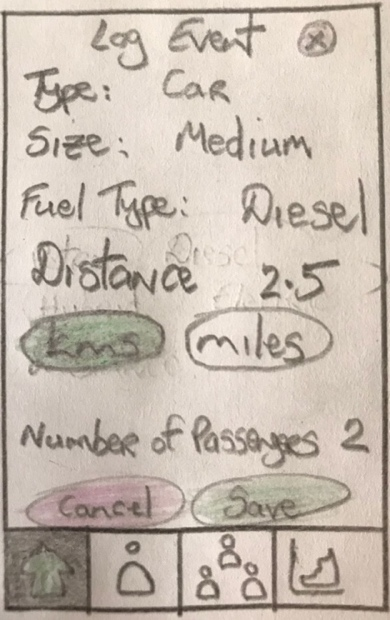 Log Event ⓧ
Type: Car
Size: Medium
Fuel Type: Diesel
Distance 2.5
kms miles
Number of Passenges 2
Cancel Save